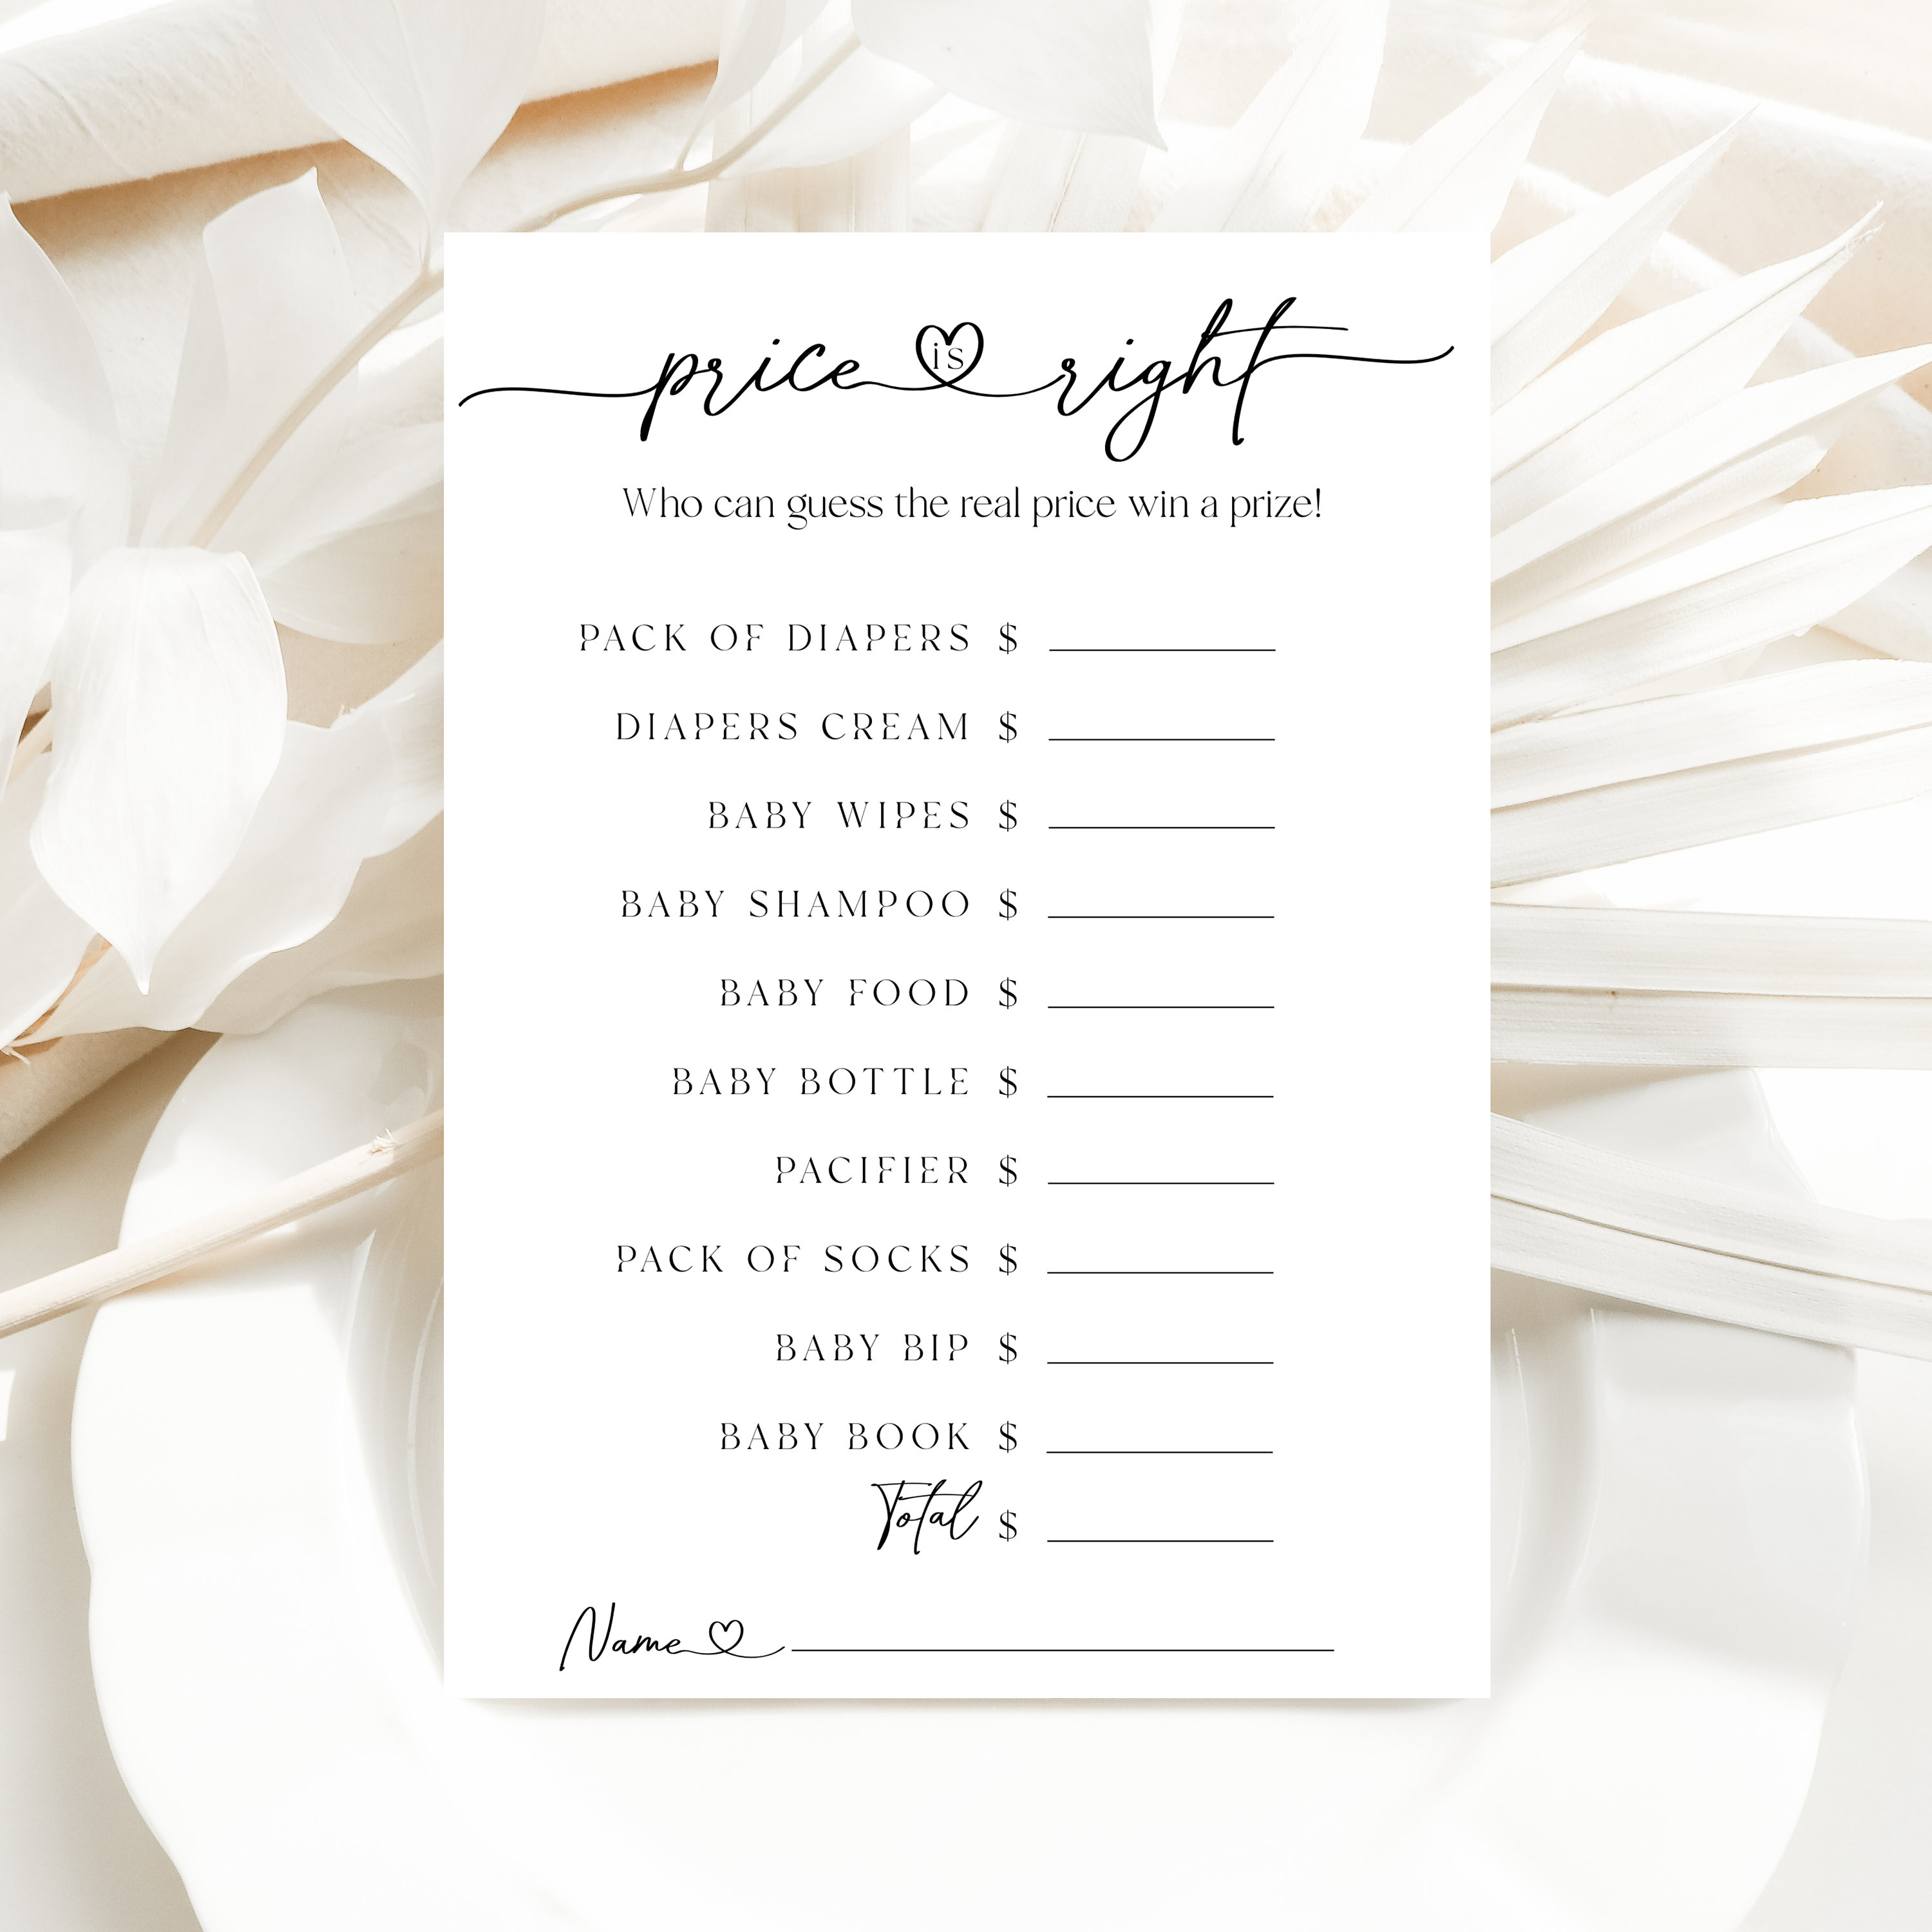 price is right
Who can guess the real price win a prize!
PACK OF DIAPERS $
DIAPERS CREAM $
BABY WIPES $
BABY SHAMPOO $
BABY FOOD $
BABY BOTTLE $
PACIFIER $
PACK OF SOCKS $
BABY BIP $
BABY BOOK $
Total $
Name